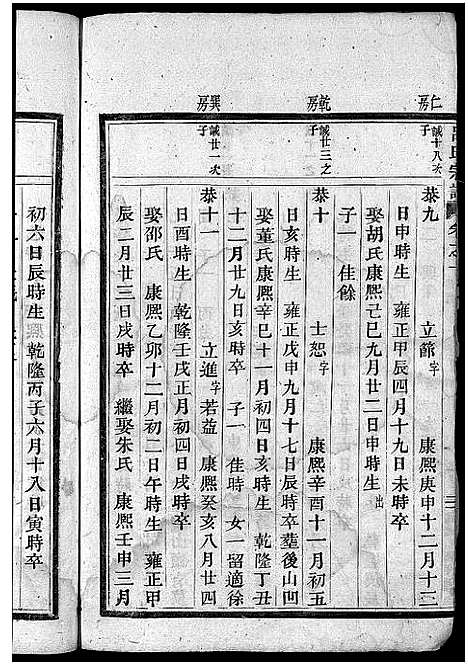 仁房
誠十八次子
恭九 立節字 康熙庚申十二月十三
日申時生 雍正甲辰四月十九日未時卒
娶胡氏康熙己巳九月廿二日申時生 出
子一 佳餘
乾房
誠廿三之子
恭十 士恕字 康熙辛酉十一月初五
日亥時生 雍正戊申九月十七日辰時卒塟後山凹
娶董氏康熙辛巳十一月初四日亥時生 乾隆丁丑
十二月廿九日亥時卒 子一 佳時 女一留適徐
巽房
誠廿一次子
恭十一 立進字若益 康熙癸亥八月廿四
日酉時生 乾隆壬戌正月初四日戌時卒
娶邵氏 康熙乙卯十二月初二日午時生 雍正甲
辰二月廿三日戌時卒 繼娶朱氏 康熙壬申三月
初六日辰時生 乾隆丙子六月十八日寅時卒